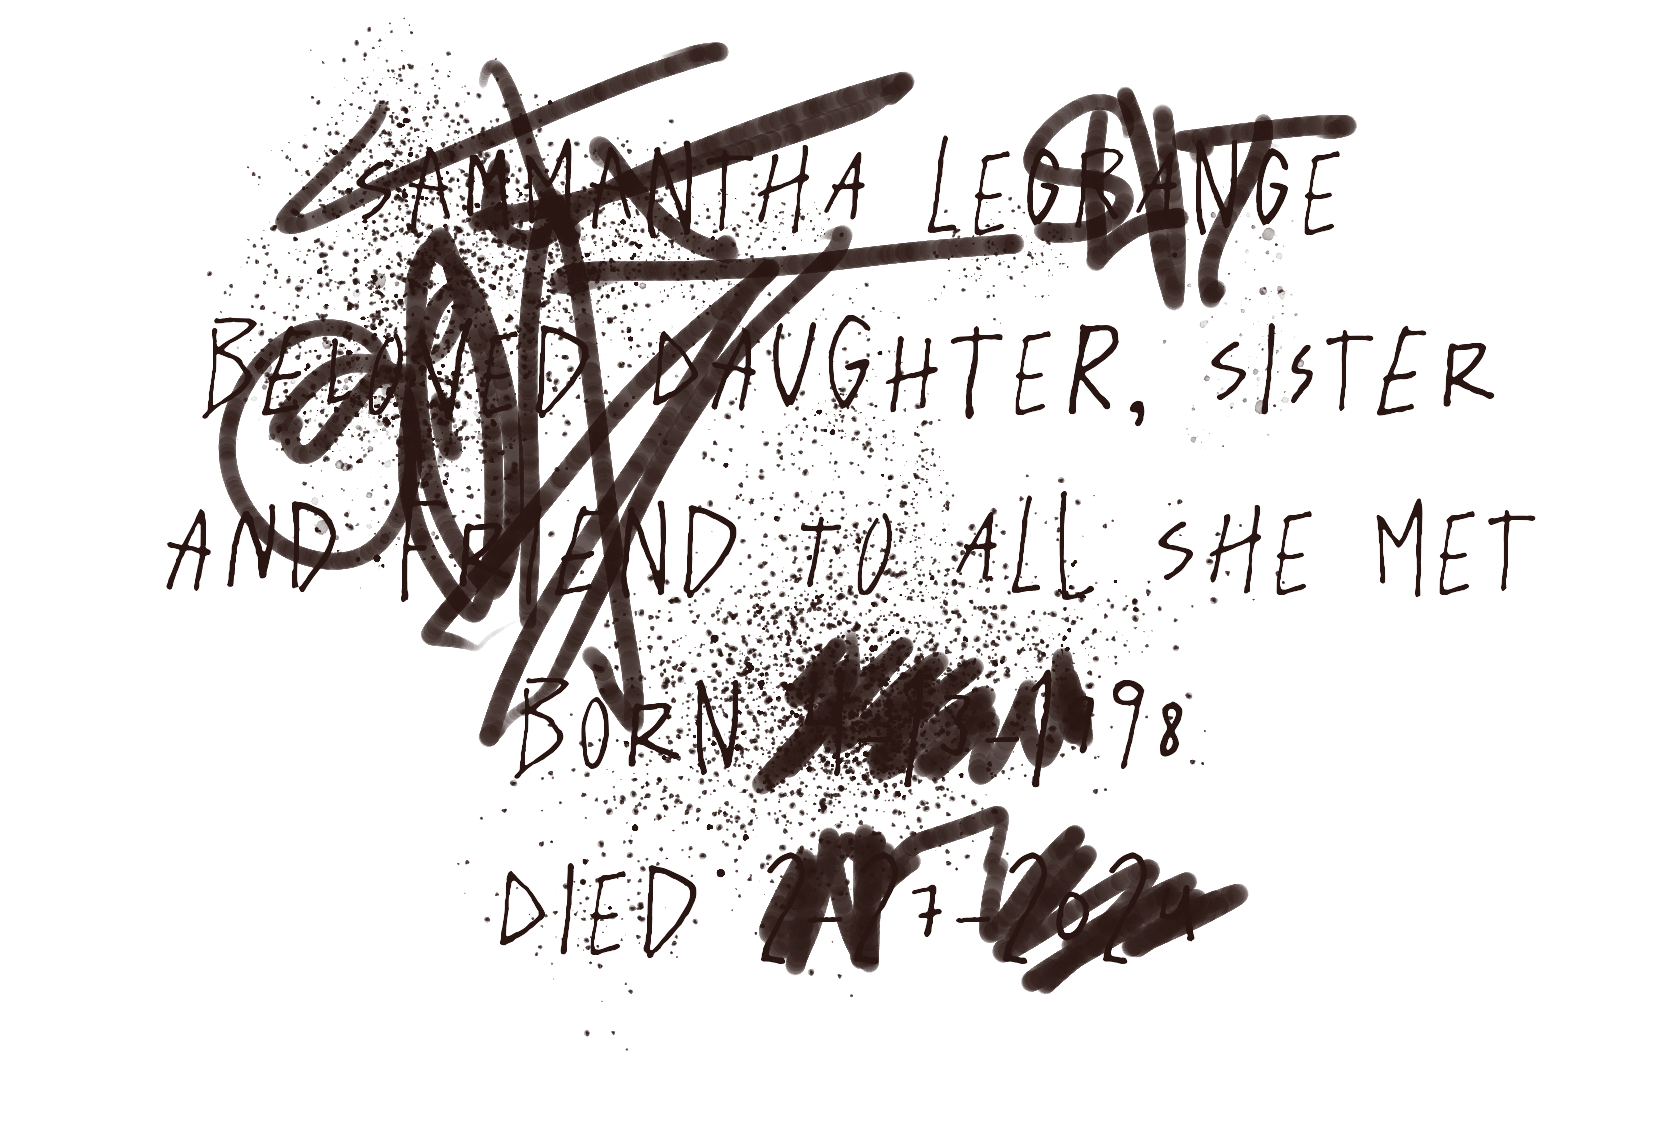 SAMANTHA LEGRANGE
BELOVED DAUGHTER, SISTER
AND FRIEND TO ALL SHE MET
BORN
DIED 2-27-2024